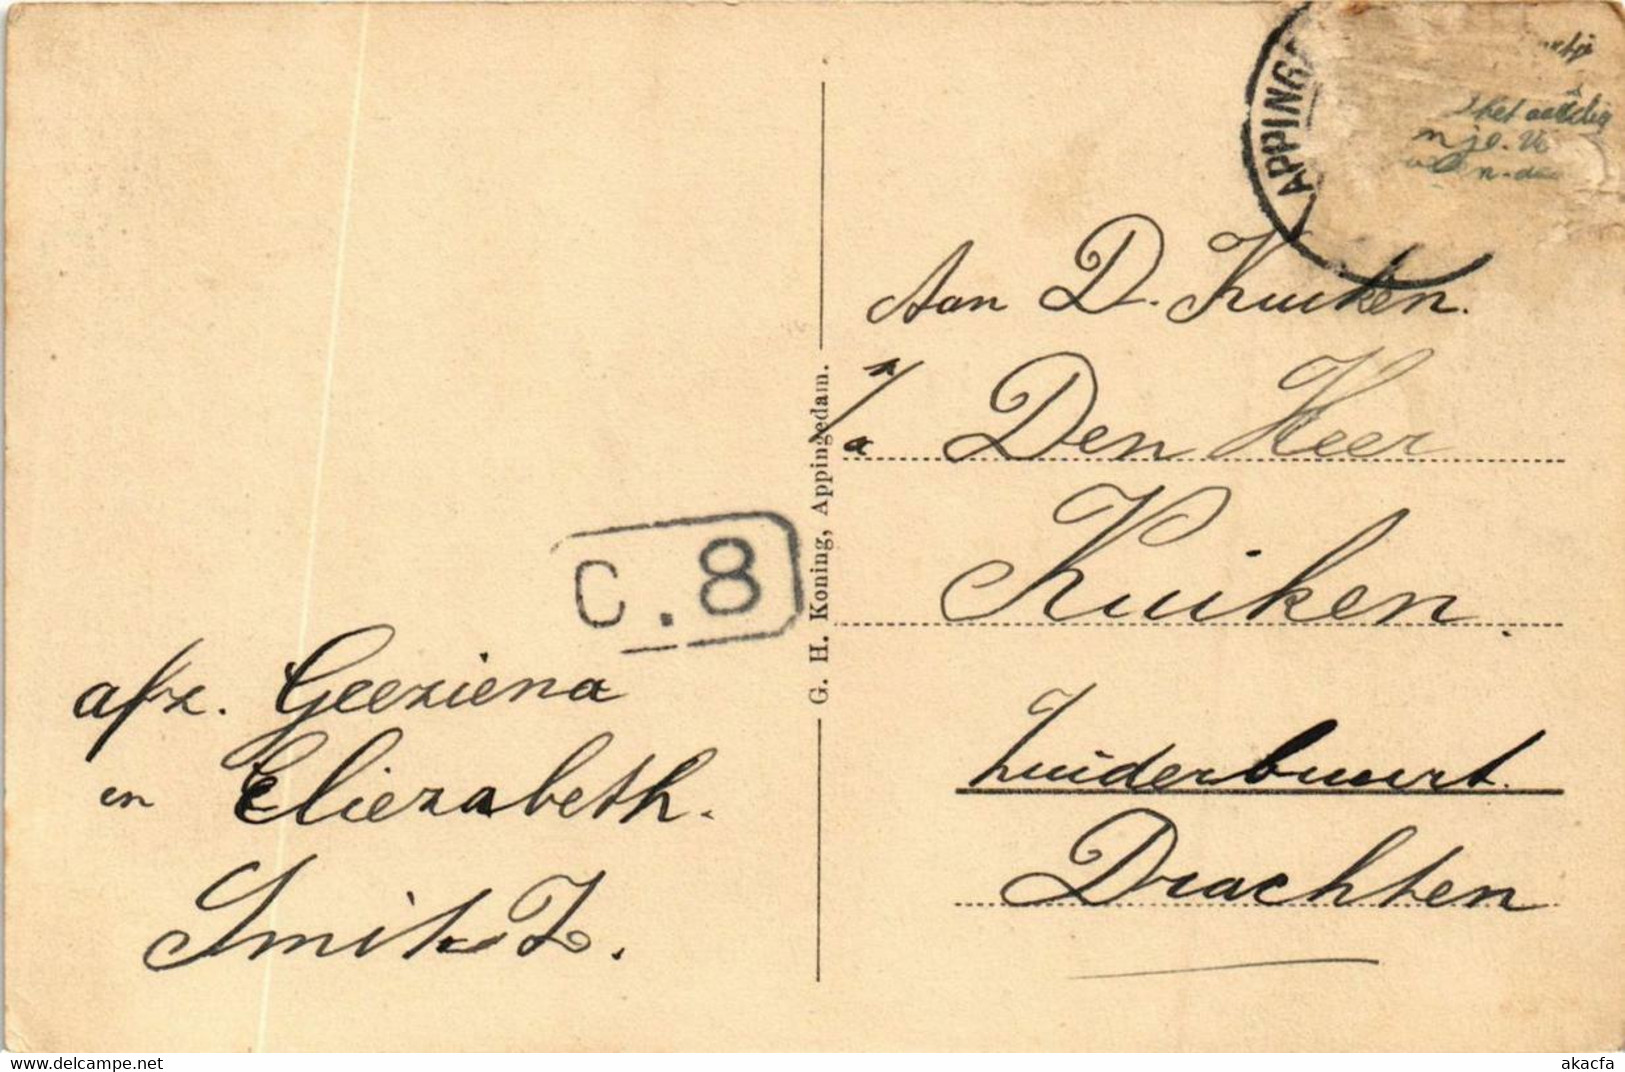 afz. Geeziena
en Eliezabeth.
Smit Z.
C.8
G. H. Koning, Appingedam.
APPINGE
het aardig
Aan D. Kuiken.
p/a Den Heer
Kuiken.
Zuiderbuurt.
Drachten
delcampe.net
akacfa